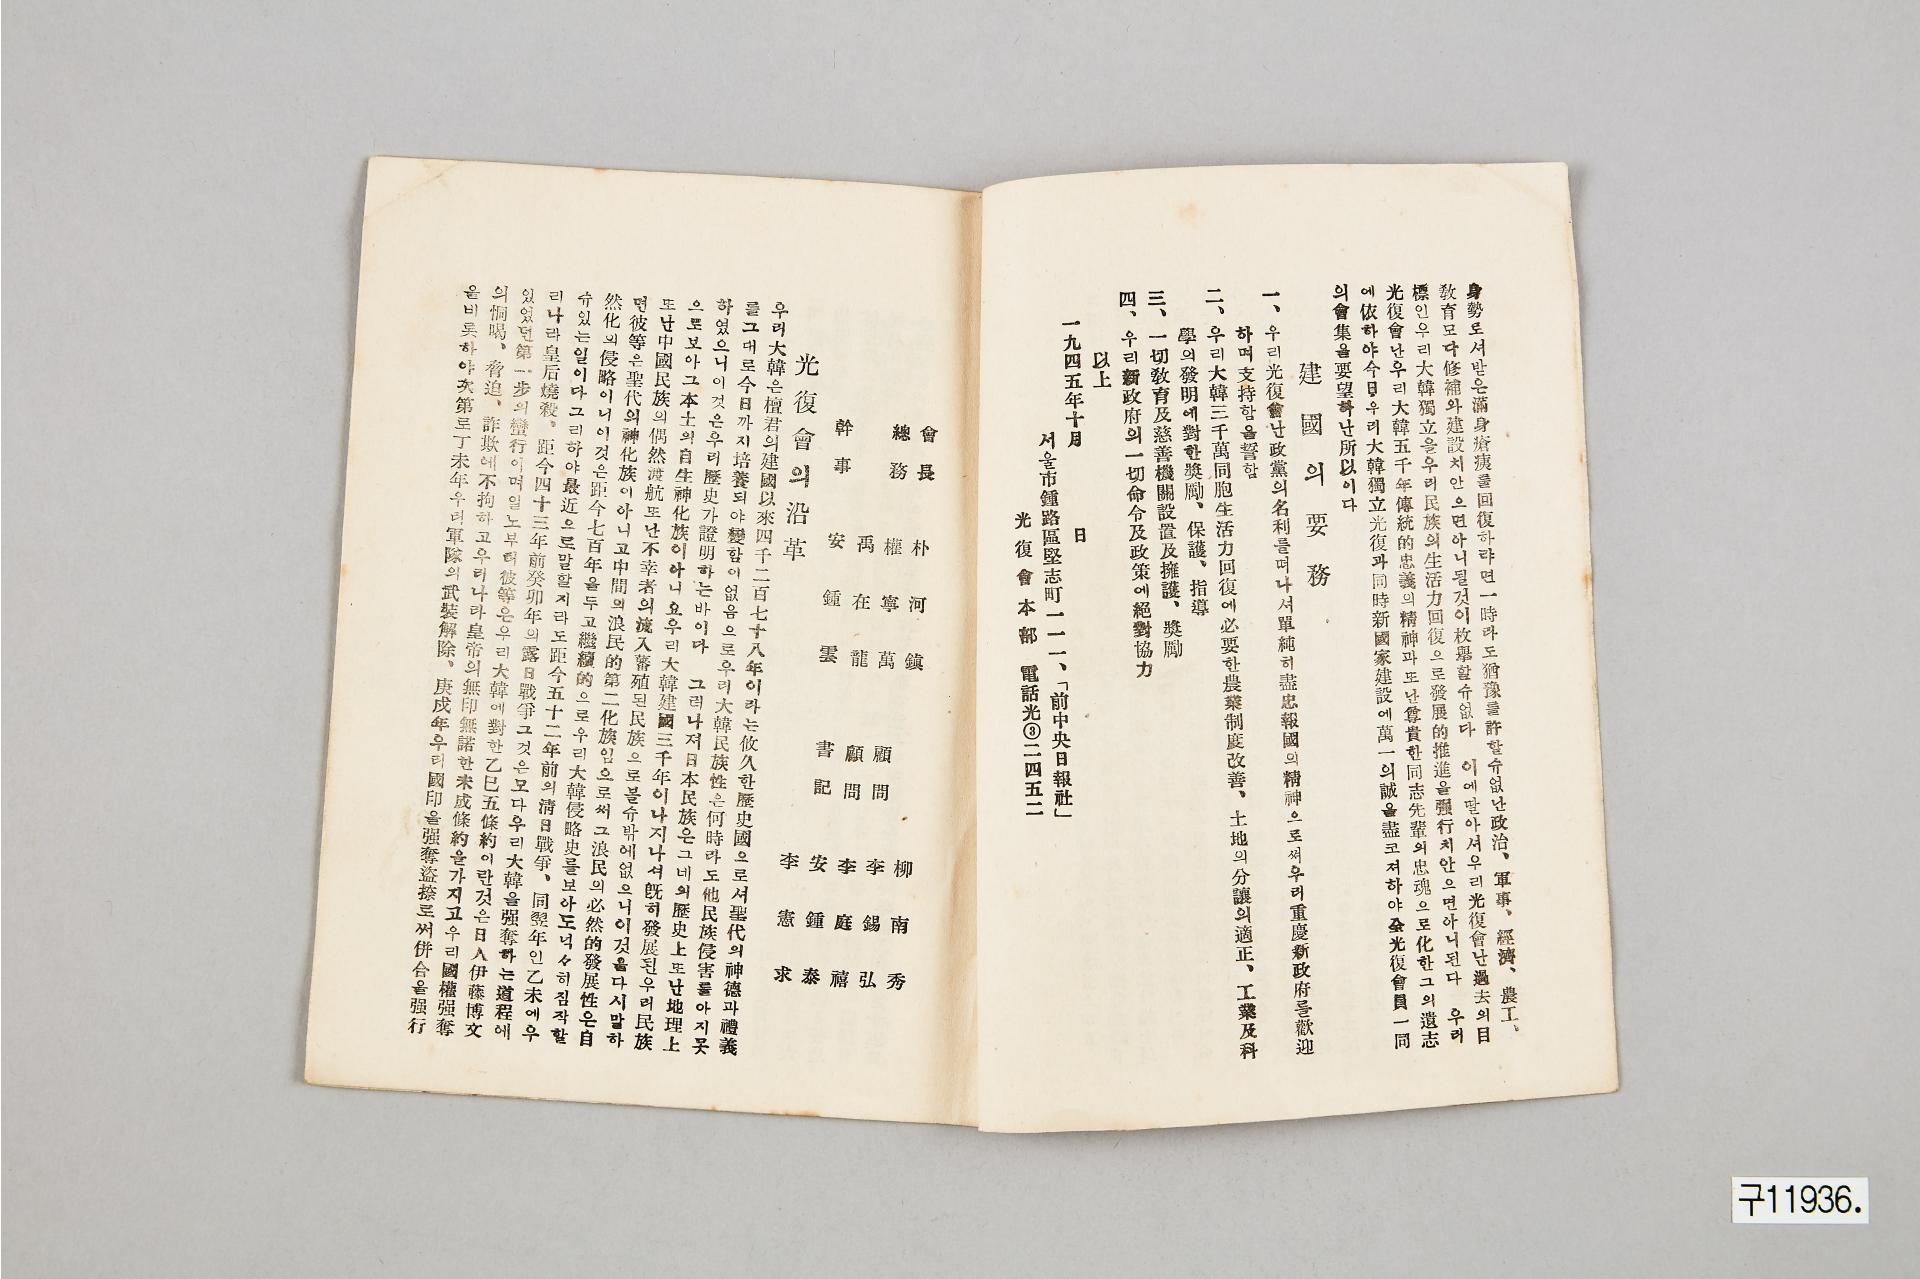 身勢로셔받은滿身瘡痍를回復하랴면一時라도猶豫를許할슈없난政治、軍事、經濟、農工、
敎育모다修補와建設치안으면아니될것이枚擧할슈없다 이에딸아셔우리光復會난過去의目
標인우리大韓獨立을우리民族의生活力回復으로發展的推進을强行치안으면아니된다 우리
光復會난우리大韓五千年傳統的忠義의精神과또난尊貴한同志先輩의忠魂으로化한그의遺志
에依하야今日우리大韓獨立光復과同時新國家建設에萬一의誠을盡코져하야全光復會員一同
의會集을要望하난所以이다
建國의要務
一、우리光復會난政黨의名利를떠나셔單純히盡忠報國의精神으로써우리重慶新政府를歡迎
하며支持함을誓함
二、우리大韓三千萬同胞生活力回復에必要한農業制度改善、土地의分讓의適正、工業及科
學의發明에對한奬勵、保護、指導
三、一切敎育及慈善機關設置及擁護、奬勵
四、우리新政府의一切命令及政策에絕對協力
以上
一九四五年十月 日
서울市鍾路區堅志町一一一、「前中央日報社」
光復會本部 電話光③二四五二
會長 朴河鎭 柳南秀
總務 權寧萬 顧問 李錫弘
禹在龍 顧問 李庭禧
幹事 安鍾雲 書記 安鍾泰
李憲求
光復會의沿革
우리大韓은檀君의建國以來四千二百七十八年이라는攸久한歷史國으로셔聖代의神德과禮義
를그대로今日까지培養되야變함이없음으로우리大韓民族性은何時라도他民族侵害를아지못
하였으니이것은우리歷史가證明하는바이다 그러나져日本民族은그네의歷史上또난地理上
으로보아그本土의自生神化族이아니요우리大韓建國三千年이나지나셔旣히發展된우리民族
또난中國民族의偶然渡航또난不幸者의流入蕃殖된民族으로볼슈밖에없으니이것을다시말하
면彼等은聖代의神化族이아니고中間의浪民的第二化族임으로써그浪民의必然的發展性은自
然化의侵略이니이것은距今七百年을두고繼續的으로우리大韓侵略史를보아도넉々히짐작할
슈있는일이다그리하야最近으로말할지라도距今五十二年前의淸日戰爭、同翌年인乙未에우
리나라皇后燒殺、距今四十三年前癸卯年의露日戰爭그것은모다우리大韓을强奪하는道程에
있었던第一步의蠻行이며일노부터彼等은우리大韓에對한乙巳五條約이란것은日人伊藤博文
의恫喝、脅迫、詐欺에不拘하고우리나라皇帝의無印無諾한未成條約을가지고우리國權强奪
을비롯하야次第로丁未年우리軍隊의武裝解除、庚戌年우리國印을强奪盜捺로써併合을强行
구11936.